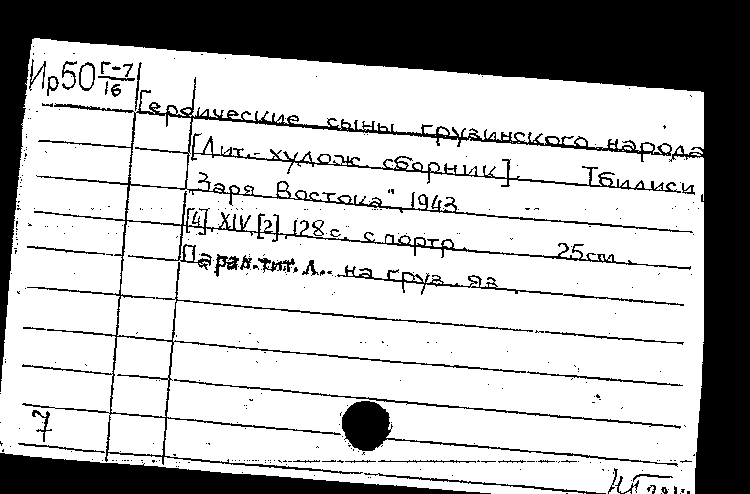 Ир50 Г-7/16
Героические сыны грузинского народа
[Лит.-худож. сборник]. Тбилиси,
"Заря Востока", 1943
[4], XIV, [2], 128 с. с портр. 25 см.
Парал. тит. л. на груз. яз.
7